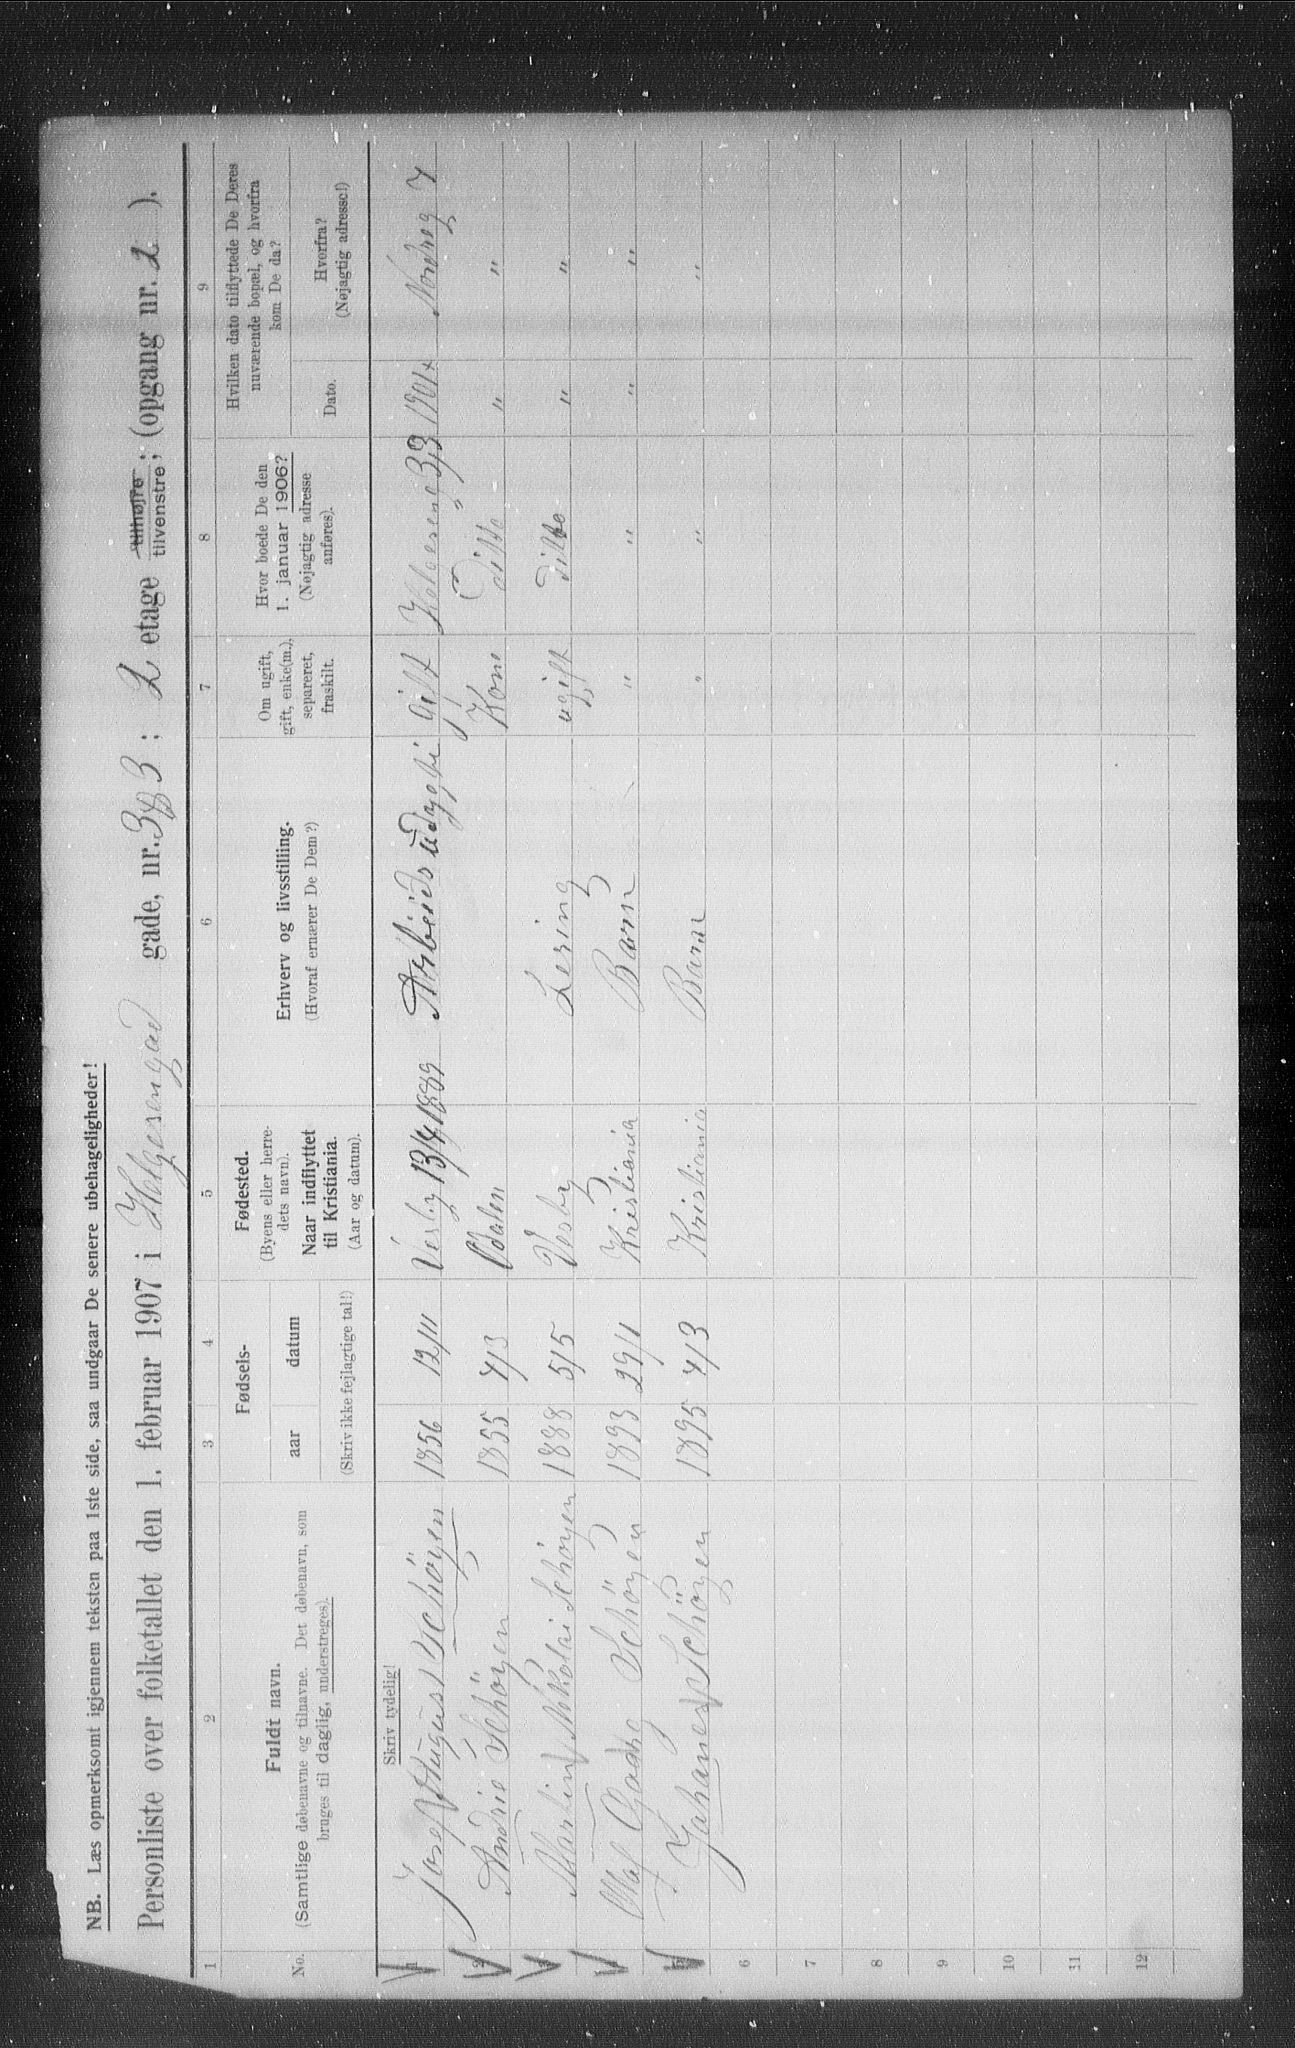 NB. Læs opmerksomt igjennem teksten paa 1ste side, saa undgaar De senere ubehageligheder!
Personliste over folketallet den 1. februar 1907 i Helgesengad gade, nr. 3 B 3; 2 etage tilhøjre tilvenstre; (opgang nr. 2).
1 2 3 4 5 6 7 8 9
No.
Fuldt navn.
(Samtlige døbenavne og tilnavne. Det døbenavn, som
bruges til daglig, understreges).
Fødsels-
aar datum
(Skriv ikke fejlagtige tal!)
Fødested.
(Byens eller herre-
dets navn).
Naar indflyttet
til Kristiania.
(Aar og datum).
Erhverv og livsstilling.
(Hvoraf ernærer De Dem?)
Om ugift,
gift, enke(m.),
separeret,
fraskilt.
Hvor boede De den
1. januar 1906?
(Nøjagtig adresse
anføres).
Hvilken dato tilflyttede De Deres
nuværende bopæl, og hvorfra
kom De da?
Dato.
Hvorfra?
(Nøjagtig adresse!)
Skriv tydelig!
1 Josef August Schöyen 1856 12/11 Vesby 13/4 1889 gift 3,3 1901
2 Schöyen 1855 4/3 Odalen Kone Ditto " "
3 Martin Nikolai Schöyen 1888 5/5 Vesby ugift ditto " "
4 Olaf Schöyen 1893 29/1 Kristiania Barn " " " "
5 Johanes Schöyen 1895 4/3 Kristiania Barn " " " "
6
7
8
9
10
11
12